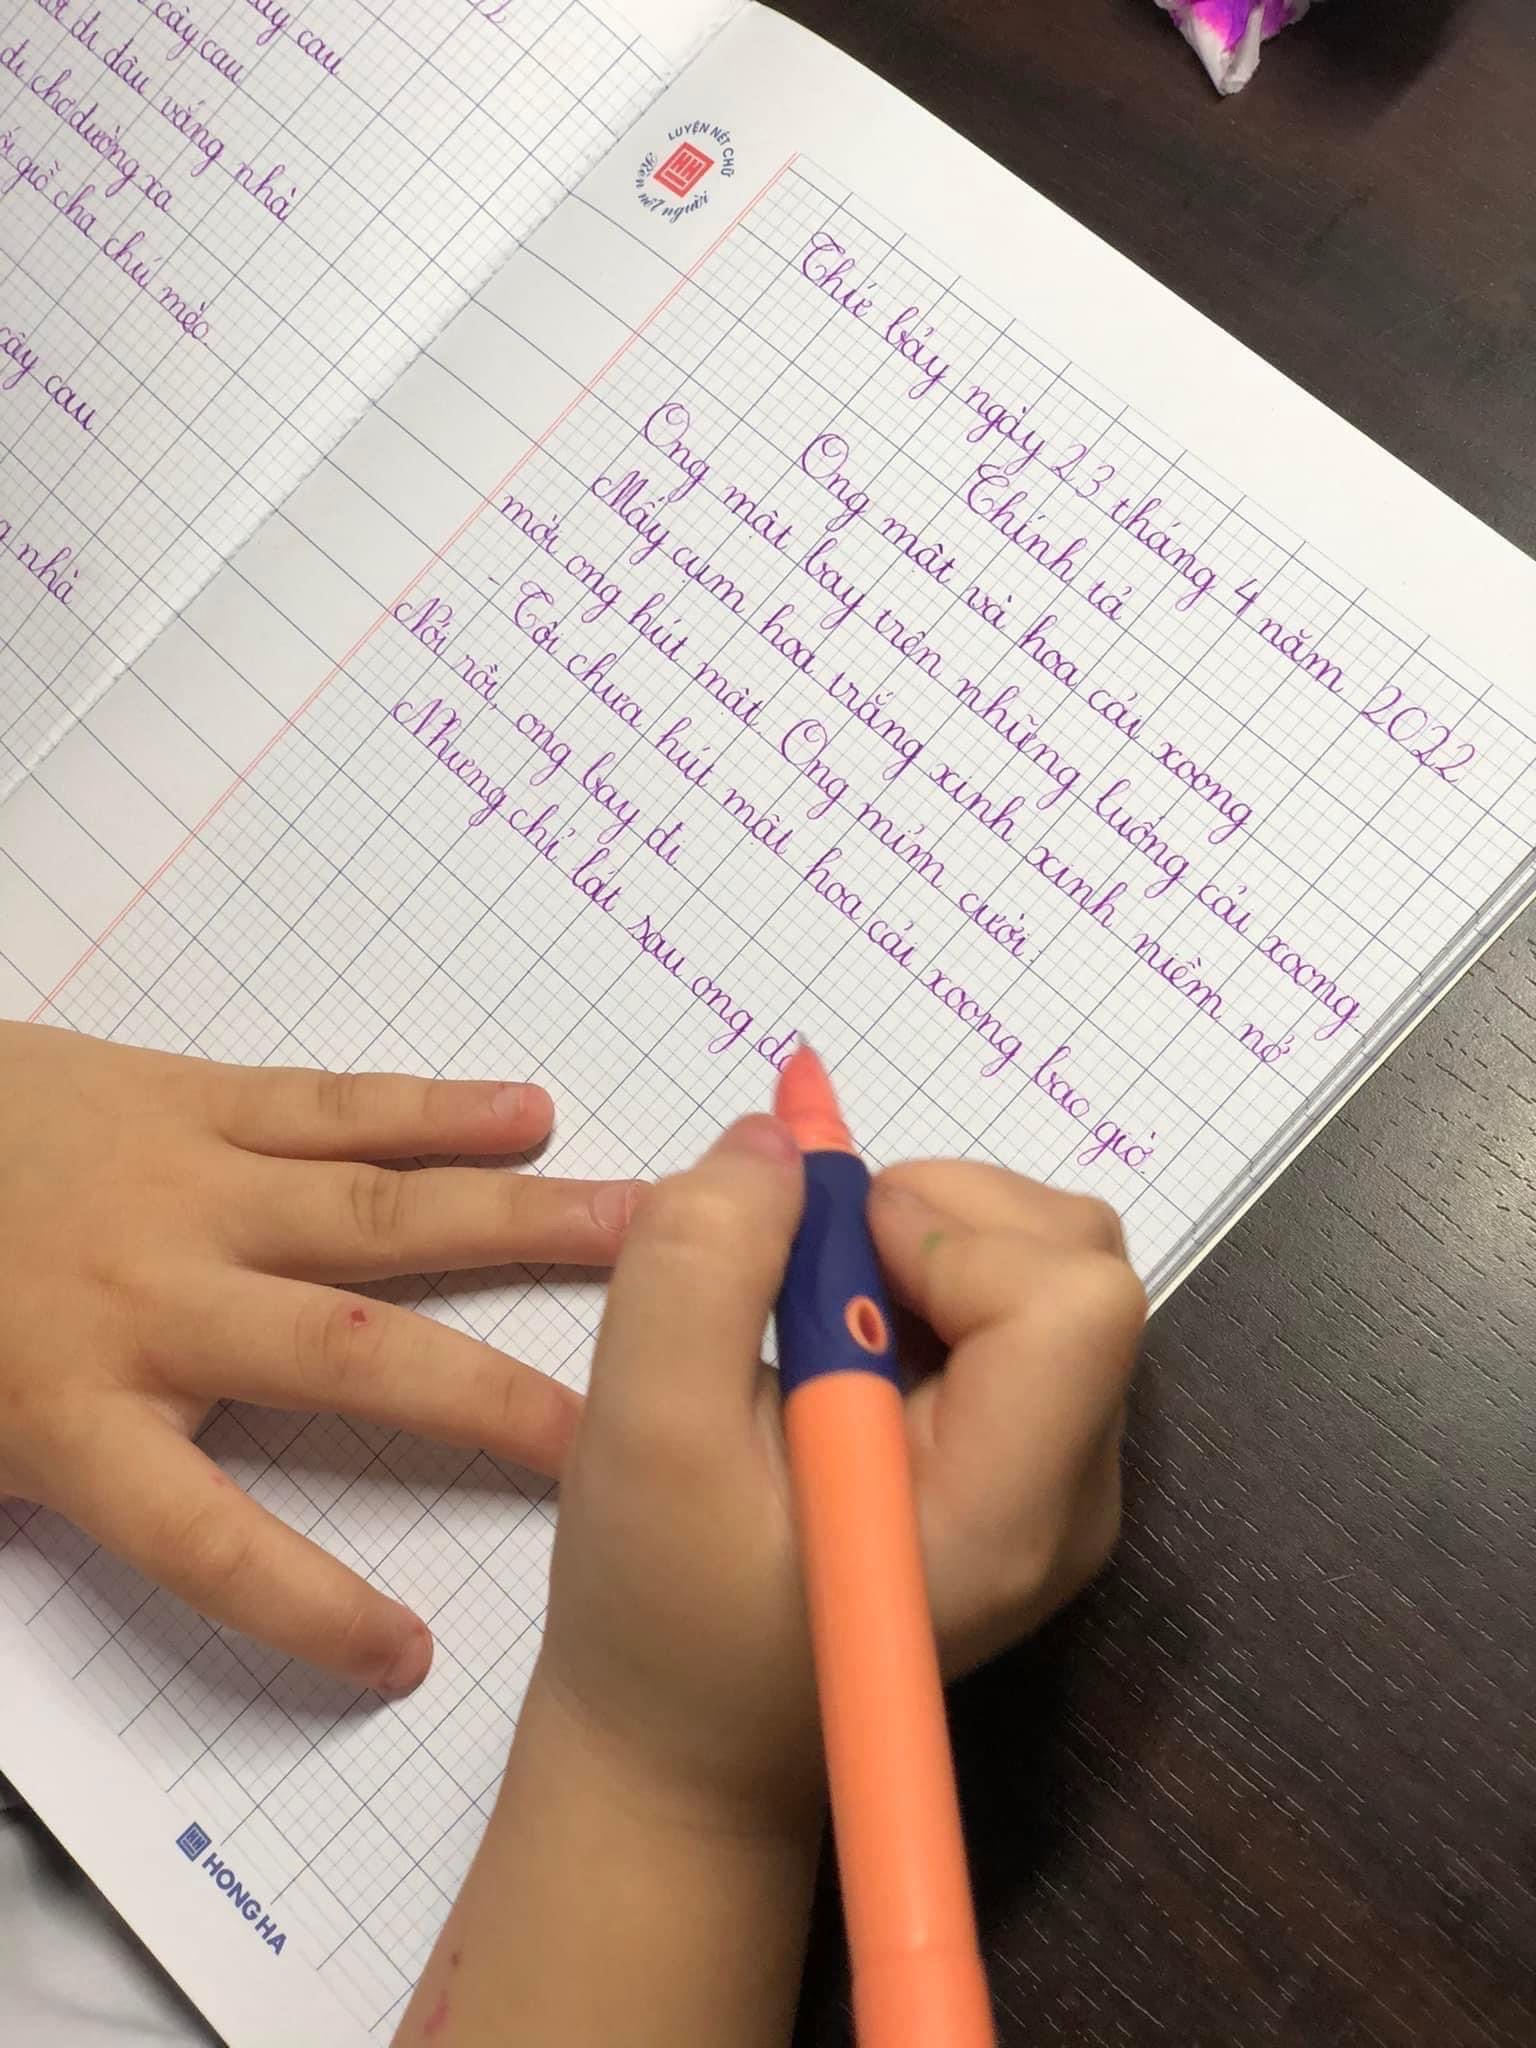 ây cau
cây cau
đi đâu vắng nhà
đi chợ đường xa
giỗ cha chú mèo.
cây cau
nhà
LUYỆN NÉT CHỮ
Rèn nết người
Thứ bảy ngày 23 tháng 4 năm 2022
Chính tả
Ong mật và hoa cải xoong
Ong mật bay trên những luống cải xoong
Mấy cụm hoa trắng xinh xinh niềm nở
mời ong hút mật. Ong mỉm cười:
- Tôi chưa hút mật hoa cải xoong bao giờ.
Nói rồi, ong bay đi.
Nhưng chỉ lát sau ong đã
HONG HA